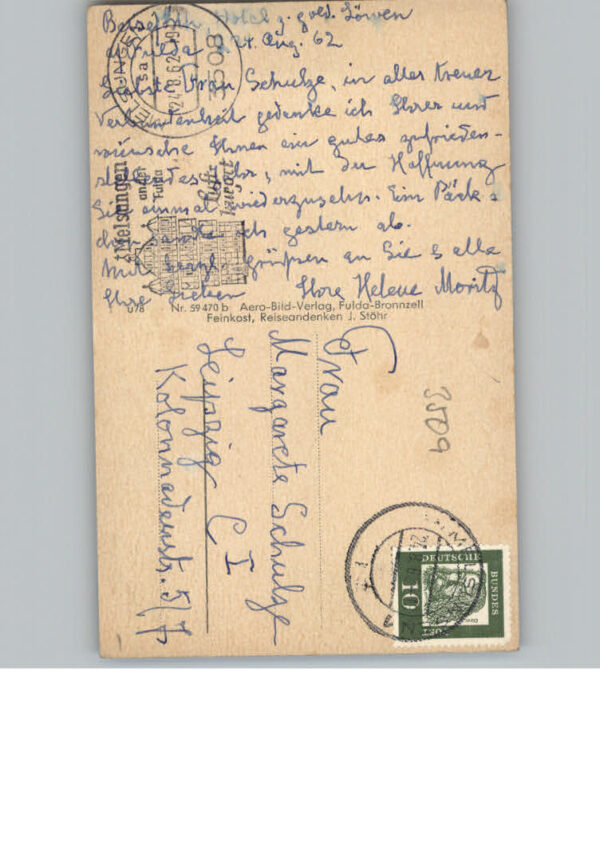 Hotel z. gold. Löwen
Fulda 24. Aug. 62
Liebste Frau Schulze, in alter treuer
Verbundenheit gedenke ich Ihrer und
wünsche Ihnen ein gutes zufrieden-
mit der Hoffnung
Sie einmal wiederzusehn. Ein Päck-
chen sandte ich gestern ab.
Mit Grüßen an Sie & alle
Ihre Lieben Ihre Helene Moritz
MELSUNGEN
24.8.62
3508
Melsungen
an der
Fulda
Luft-
kurort
078 Nr. 59470 b Aero-Bild-Verlag, Fulda-Bronnzell
Feinkost, Reiseandenken J. Stöhr
Frau
Margarete Schulze
Leipzig C I
Kolonnadenstr. 5/7
3509
DEUTSCHE
BUNDES
POST
10